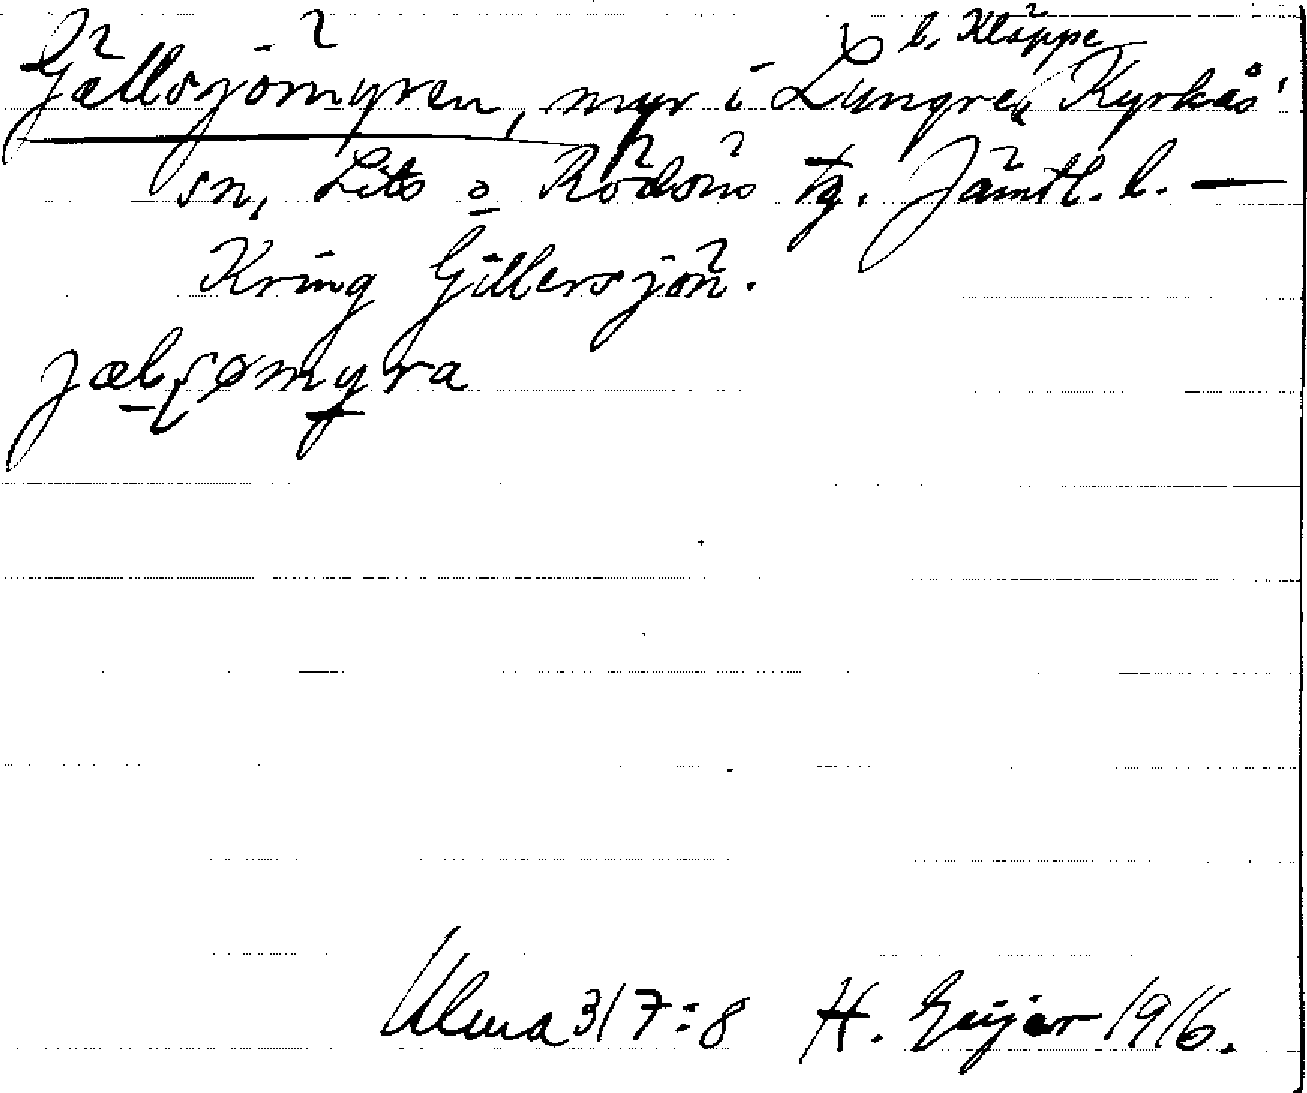 Gällsjömyren, myr i Lungre, b. Kläppe Kyrkås
sn, Lits o Rödöns tg. Jämtl. l. —
Kring Gillersjön.
jælʂømyra
Ulma 317:8 H. Geijer 1916.